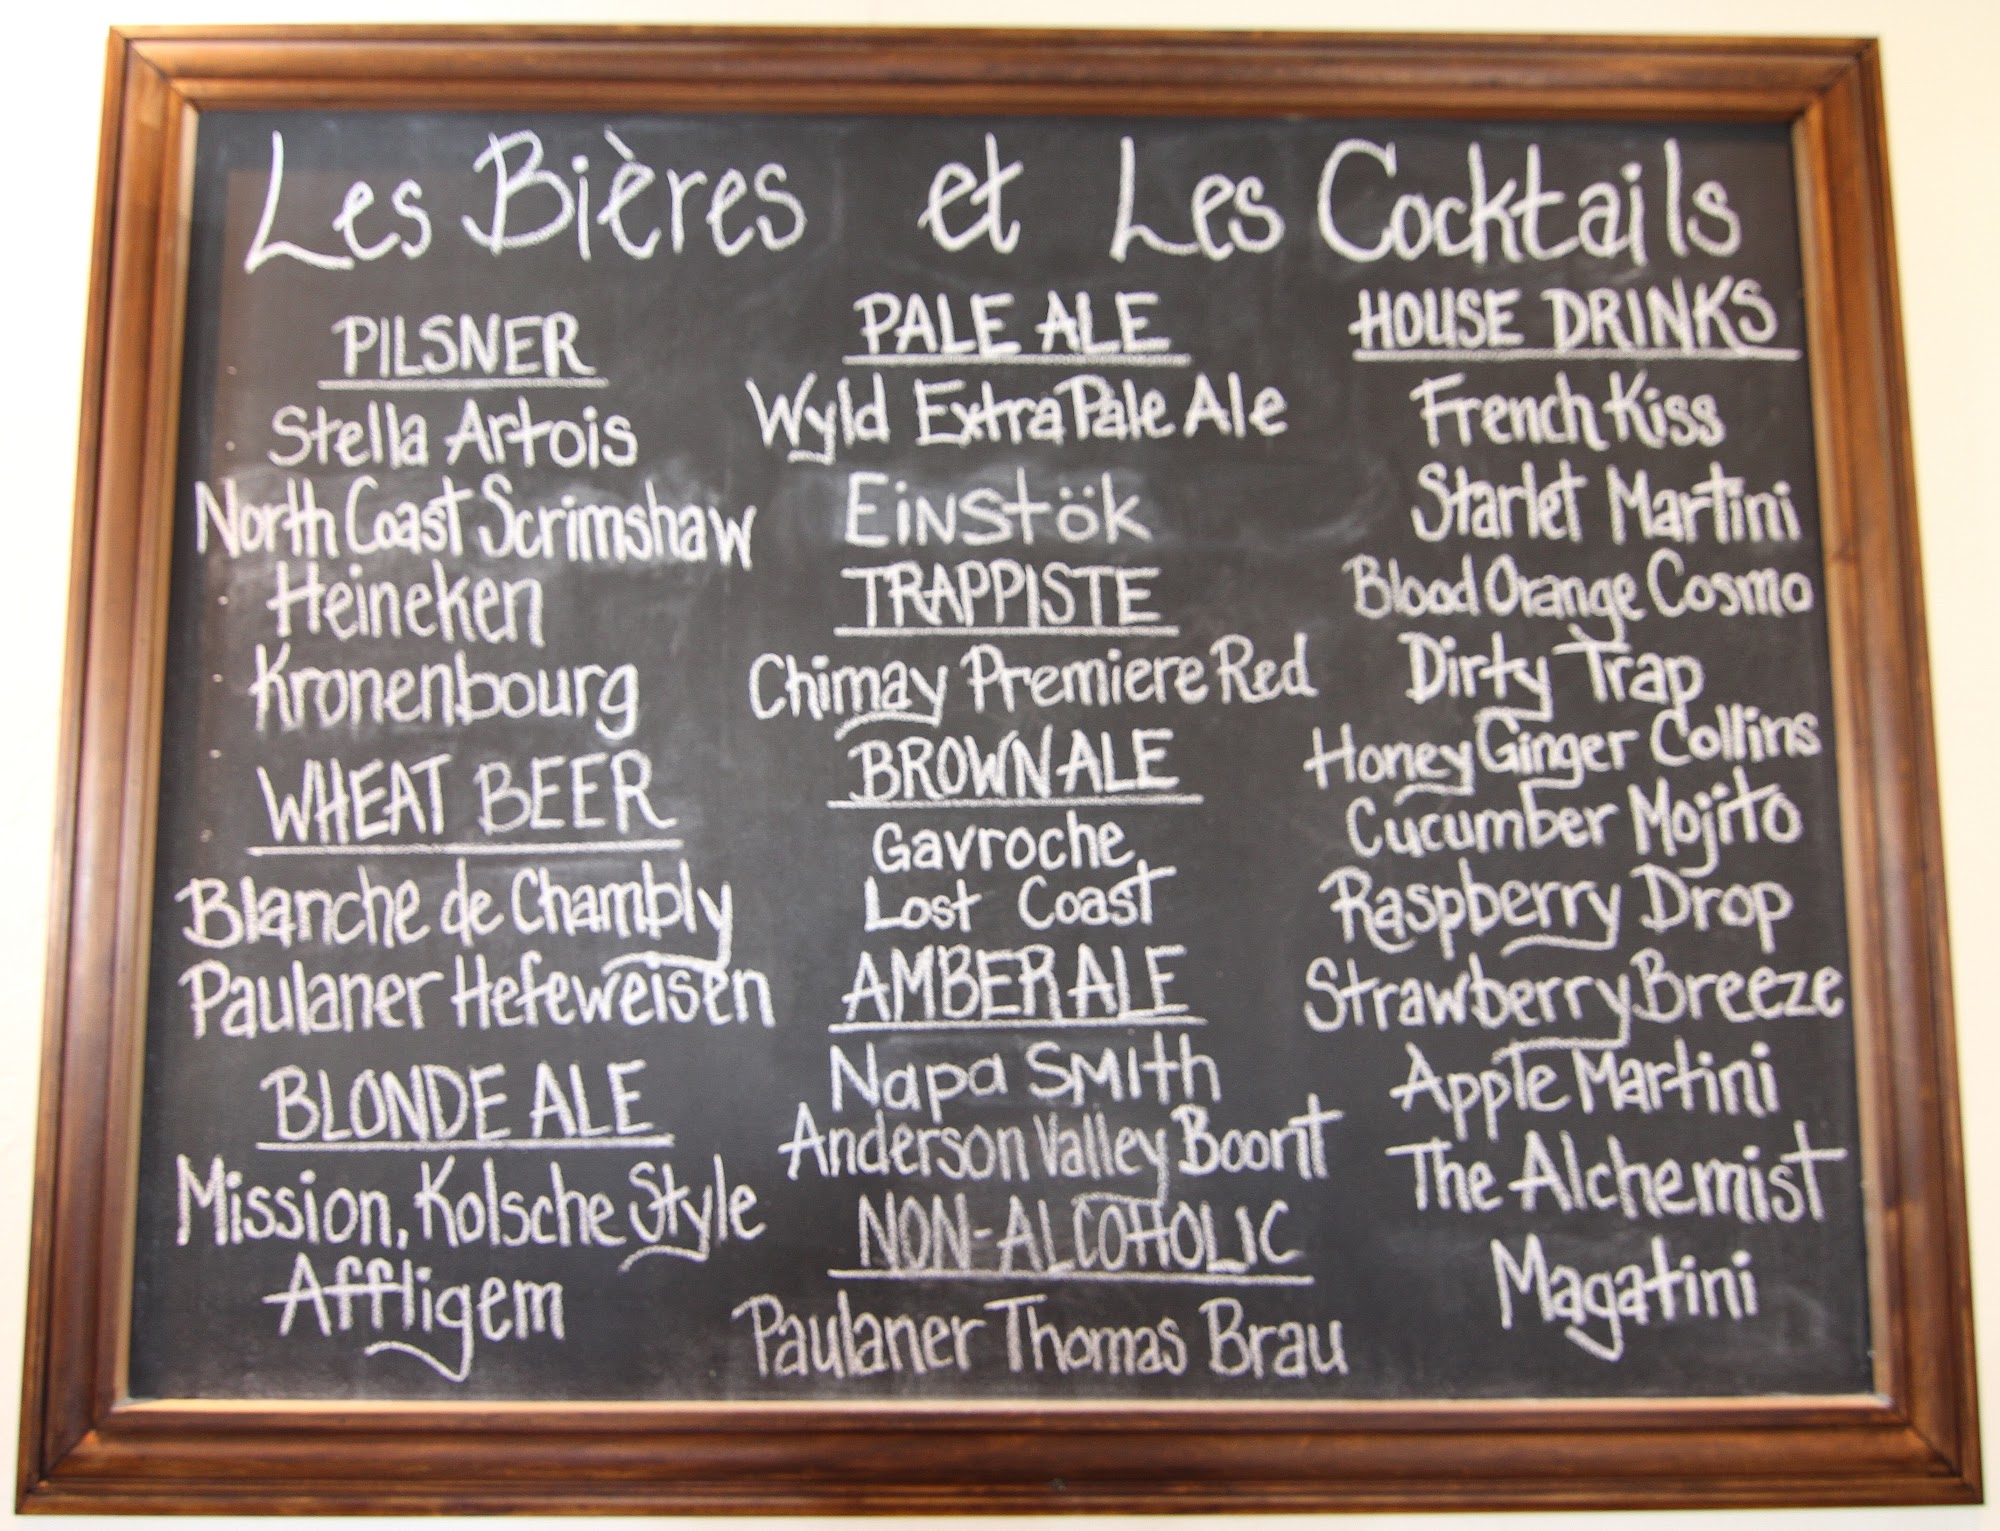 Les Bières et Les Cocktails
PILSNER
Stella Artois
North Coast Scrimshaw
Heineken
Kronenbourg
WHEAT BEER
Blanche de Chambly
Paulaner Hefeweisen
BLONDE ALE
Mission, Kolsche Style
Affligem
PALE ALE
Wyld Extra Pale Ale
Einstök
TRAPPISTE
Chimay Premiere Red
BROWN ALE
Gavroche
Lost Coast
AMBER ALE
Napa Smith
Anderson Valley Boont
NON-ALCOHOLIC
Paulaner Thomas Brau
HOUSE DRINKS
French Kiss
Starlet Martini
Blood Orange Cosmo
Dirty Trap
Honey Ginger Collins
Cucumber Mojito
Raspberry Drop
Strawberry Breeze
Apple Martini
The Alchemist
Magatini